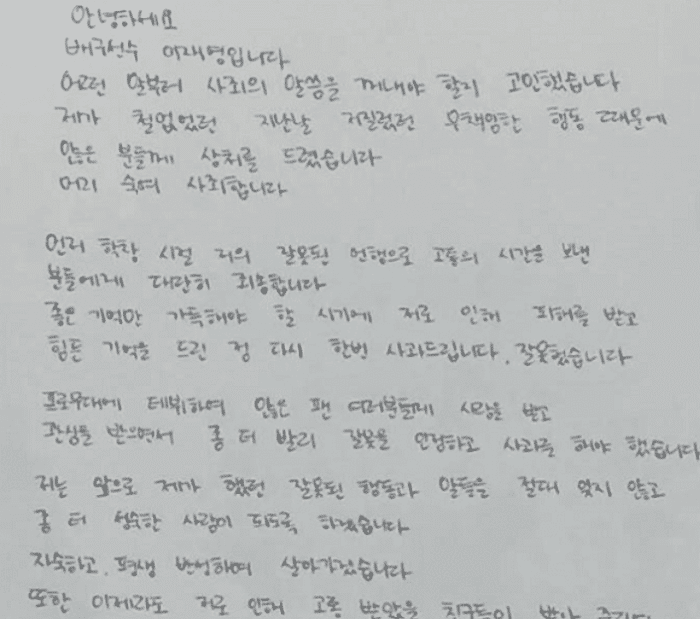 안녕하세요
배구선수 이재영입니다
어떤 말부터 사죄의 말씀을 꺼내야 할지 고민했습니다
제가 철없었던 지난날 저질렀던 무책임한 행동 때문에
많은 분들께 상처를 드렸습니다
머리 숙여 사죄합니다
먼저 학창 시절 저의 잘못된 언행으로 고통의 시간을 보낸
분들에게 대단히 죄송합니다
좋은 기억만 가득해야 할 시기에 저로 인해 피해를 받고
힘든 기억을 드린 점 다시 한번 사과드립니다. 잘못했습니다
프로무대에 데뷔하여 많은 팬 여러분들께 사랑을 받고
관심을 받으면서 좀 더 빨리 잘못을 인정하고 사과를 해야 했습니다
저는 앞으로 제가 했던 잘못된 행동과 말들을 절대 잊지 않고
좀 더 성숙한 사람이 되도록 하겠습니다
자숙하고, 평생 반성하며 살아가겠습니다
또한 이제라도 저로 인해 고통 받았을 친구들이 받아